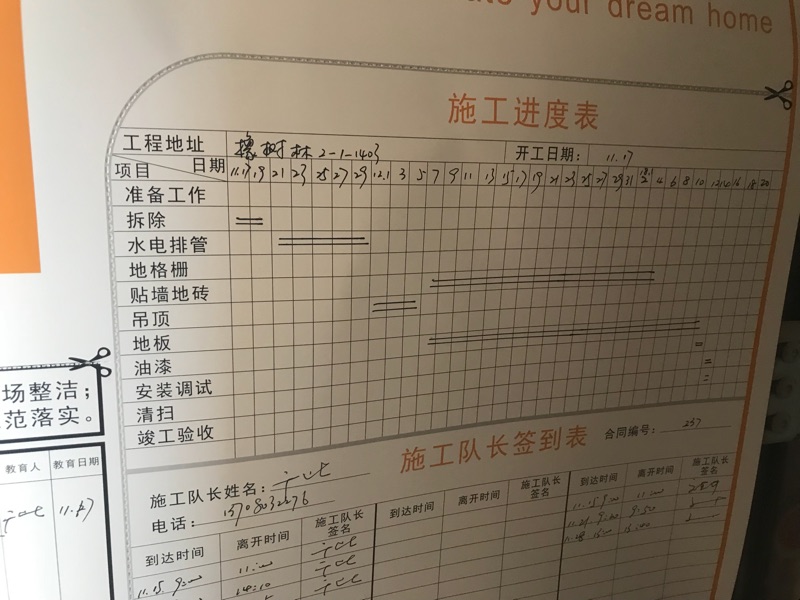 your dream home
施工进度表
工程地址 橡树林 2-1-1403 开工日期: 11.17
项目 日期 11.17 19 21 23 25 27 29 12.1 3 5 7 9 11 13 15 17 19 21 23 25 27 29 31 4 6 8 10 12 14 16 18 20
准备工作
拆除
水电排管
地格栅
贴墙地砖
吊顶
地板
油漆
安装调试
清扫
竣工验收
场整洁;
范落实。
教育人 教育日期
11.17
施工队长签到表 合同编号: 237
施工队长姓名:
电话:
到达时间 离开时间 施工队长签名 到达时间 离开时间 施工队长签名 到达时间 离开时间 施工队长签名
11.15 9:00 11:00
14:10